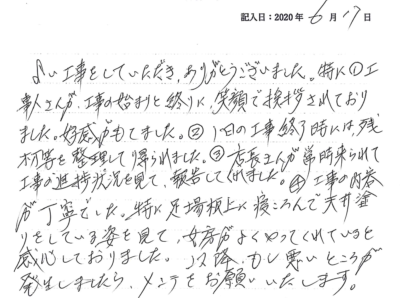 記入日:2020年 6月17日
よい工事をしていただき、ありがとうございました。特に①工
事人さんが、工事の始まりと終りに、笑顔で挨拶されており
ました。好感がもてました。② 1日の工事終了時には残
材等を整理して帰られました。③店長さんが常時来られて
工事の進捗状況を見て、報告してくれました。④工事の内容
が丁寧でした。特に足場板上に寝ころんで天井塗
りをしている姿を見て、女房がよくやってくれていると
感心しておりました。以降、もし悪いところが
発生しましたら、メンテをお願いいたします。